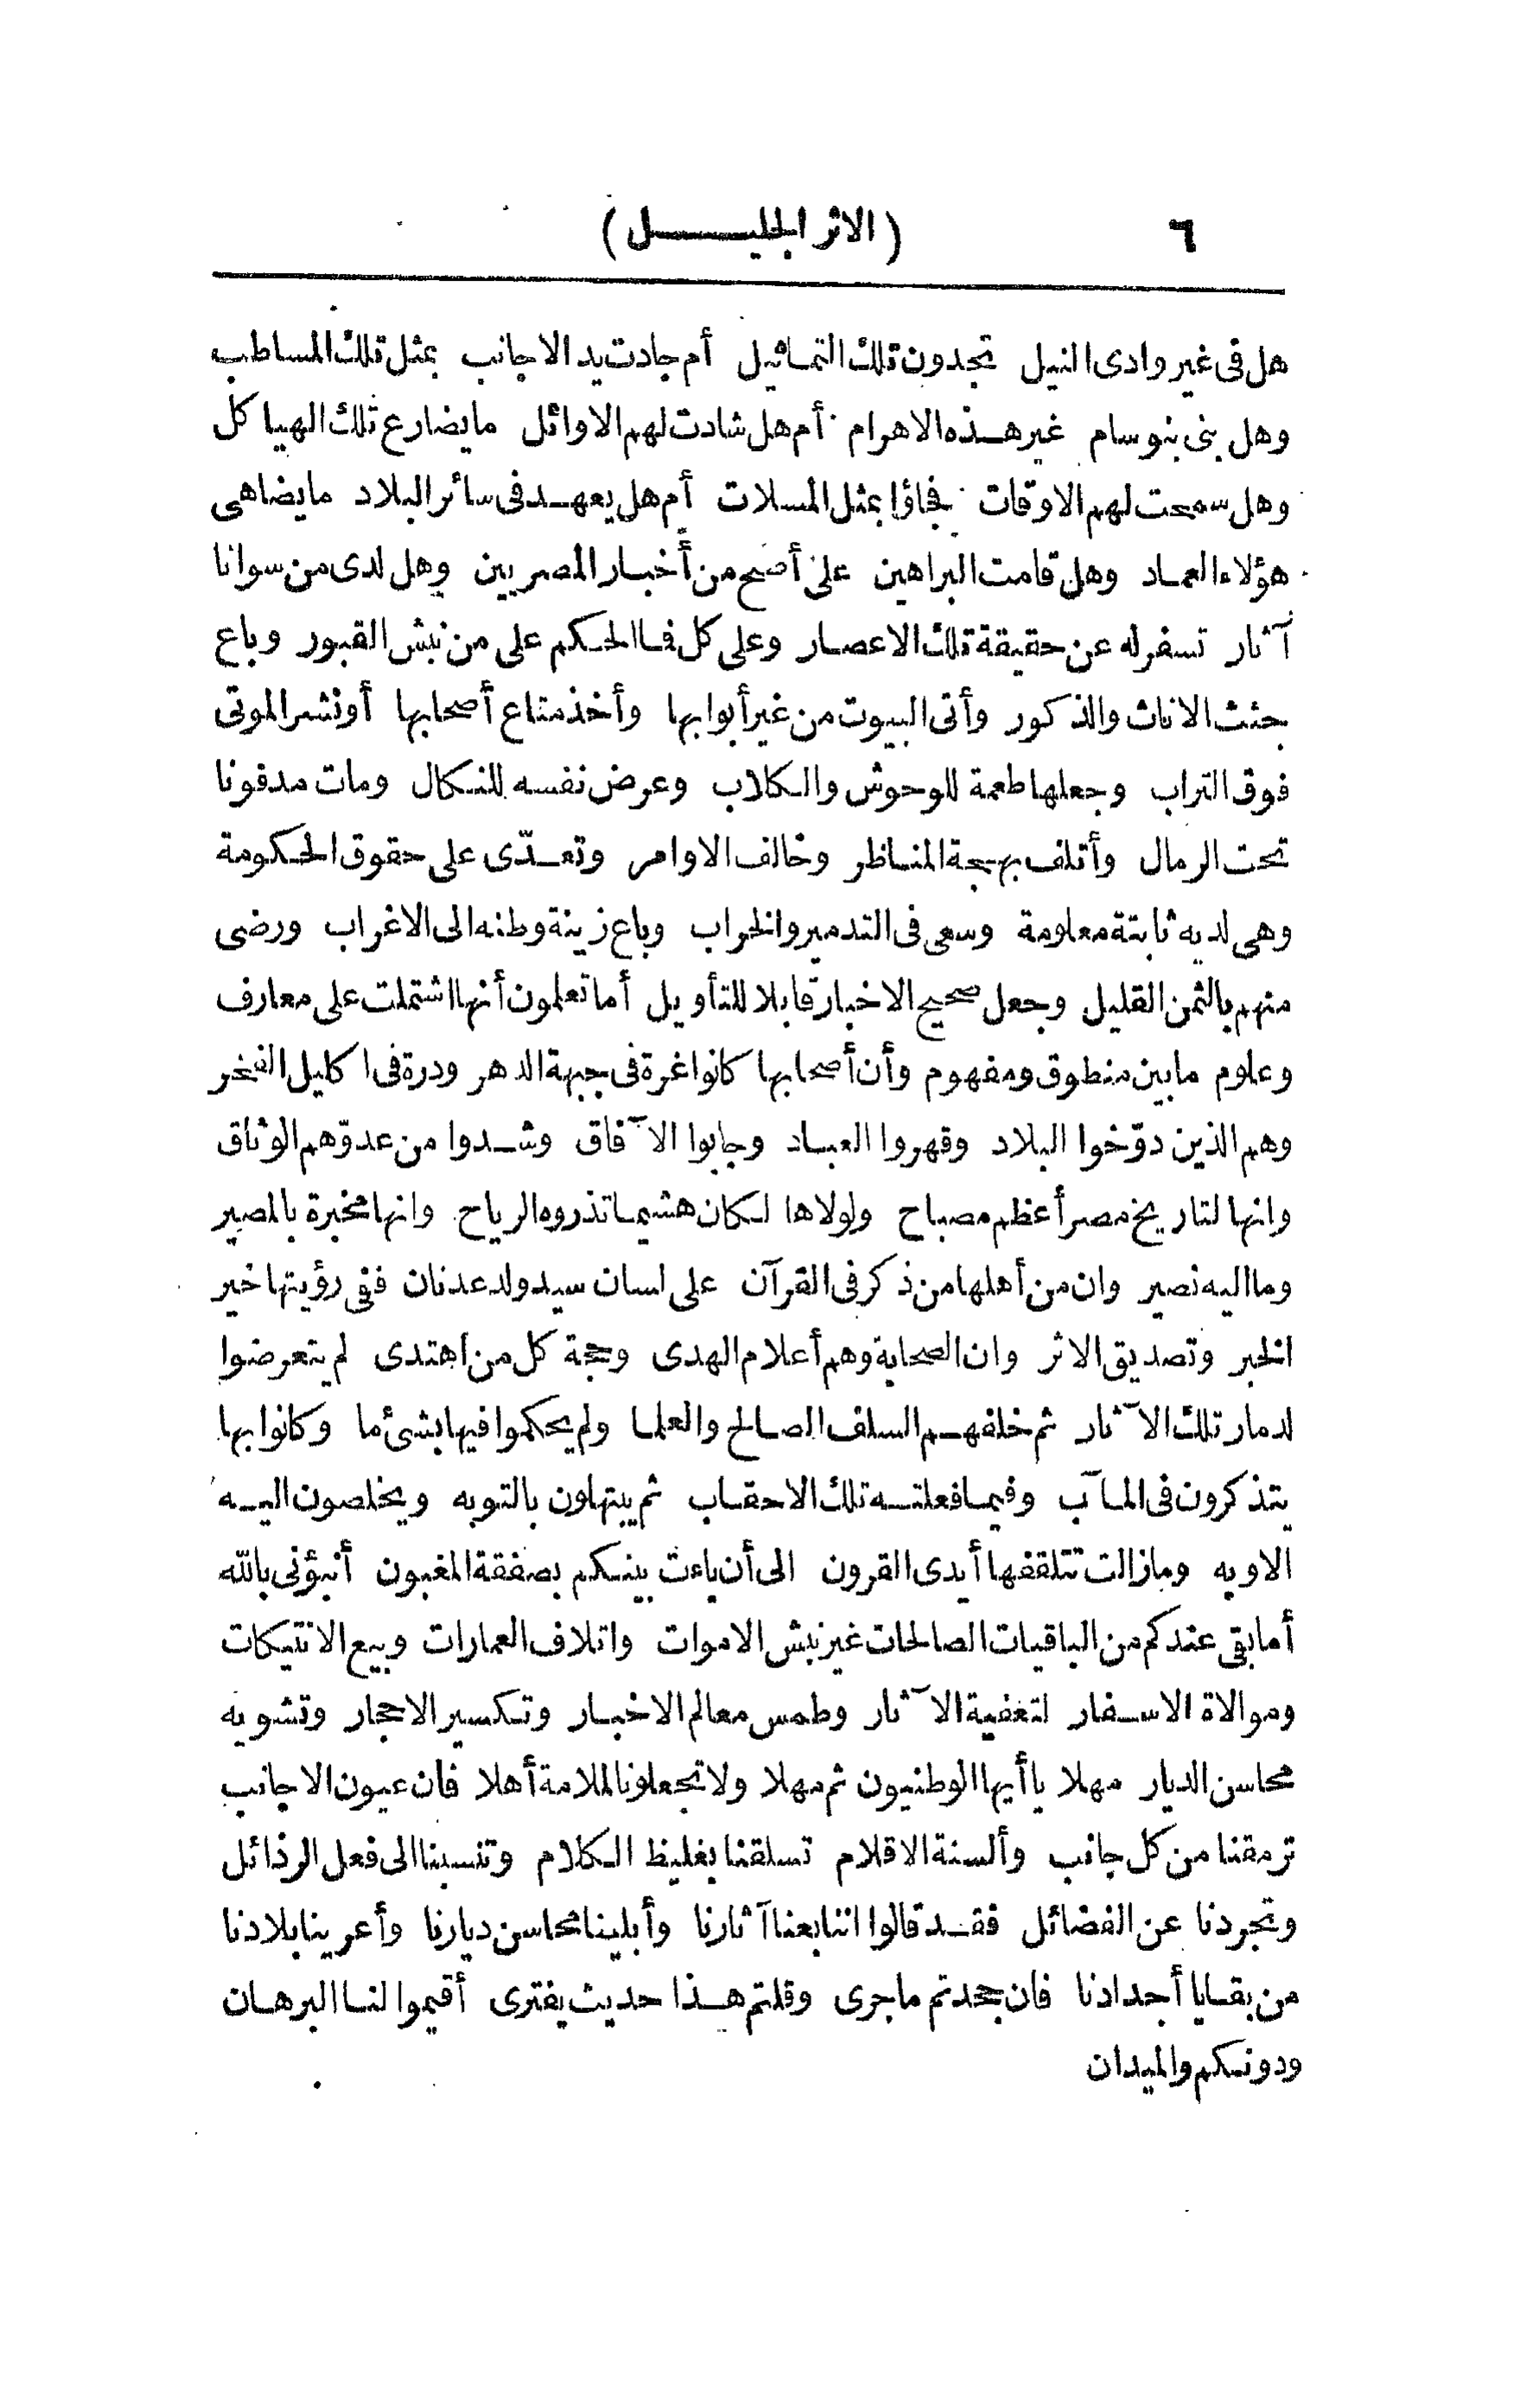 ٦
(الاثر الجليل)
هل فى غير وادى النيل تجدون تلك التماثيل أم جادت يد الاجانب بمثل تلك المساطب
وهل بنى بنو سام غير هذه الاهرام أم هل شادت لهم الاوائل ما يضارع تلك الهيا كل
وهل سمحت لهم الاوقات فجاؤا بمثل المسلات أم هل يعهد فى سائر البلاد ما يضاهى
هؤلاء العماد وهل قامت البراهين على أصح من أخبار المصريين وهل لدى من سوانا
آثار تسفر له عن حقيقة تلك الاعصار وعلى كل فما الحكم على من نبش القبور وباع
جثث الاناث والذكور وأتى البيوت من غير أبوابها وأخذ متاع أصحابها أو نشر الموتى
فوق التراب وجعلها طعمة للوحوش والكلاب وعرض نفسه للنكال ومات مدفونا
تحت الرمال وأتلف بهجة المناظر وخالف الاوامر وتعدّى على حقوق الحكومة
وهى لديه ثابتة معلومة وسعى فى التدمير والخراب وباع زينة وطنه الى الاغراب ورضى
منهم بالثمن القليل وجعل صحيح الاخبار قابلا للتأويل أما تعلمون أنها اشتملت على معارف
وعلوم ما بين منطوق ومفهوم وأن أصحابها كانوا غرة فى جبهة الدهر ودرة فى اكليل الفخر
وهم الذين دوّخوا البلاد وقهروا العباد وجابوا الآفاق وشدوا من عدوّهم الوثاق
وانها لتاريخ مصر أعظم مصباح ولولاها لكان هشيما تذروه الرياح وانها مخبرة بالمصير
وما اليه نصير وان من أهلها من ذكر فى القرآن على لسان سيد ولد عدنان ففى رؤيتها خير
الخبر وتصديق الاثر وان الصحابة وهم أعلام الهدى وحجة كل من اهتدى لم يتعرضوا
لدمار تلك الآثار ثم خلفهم السلف الصالح والعلما ولم يحكموا فيها بشئ ما وكانوا بها
يتذكرون فى المآب وفيما فعلته تلك الاحقاب ثم يبتهلون بالتوبه ويخلصون اليه
الاوبه ومازالت تتلقفها أيدى القرون الى أن باءت بينكم بصفقة المغبون أنبؤنى بالله
أما بقى عندكم من الباقيات الصالحات غير نبش الاموات واتلاف العمارات وبيع الانتيكات
وموالاة الاسفار لتعفية الآثار وطمس معالم الاخبار وتكسير الاحجار وتشويه
محاسن الديار مهلا يا أيها الوطنيون ثم مهلا ولا تجعلونا للملامة أهلا فان عيون الاجانب
ترمقنا من كل جانب وألسنة الاقلام تسلقنا بغليظ الكلام وتنسبنا الى فعل الرذائل
وتجردنا عن الفضائل فقد قالوا اننا بعنا آثارنا وأبلينا محاسن ديارنا وأعرينا بلادنا
من بقايا أجدادنا فان جحدتم ما جرى وقلتم هذا حديث يفترى أقيموا لنا البرهان
ودونكم والميدان